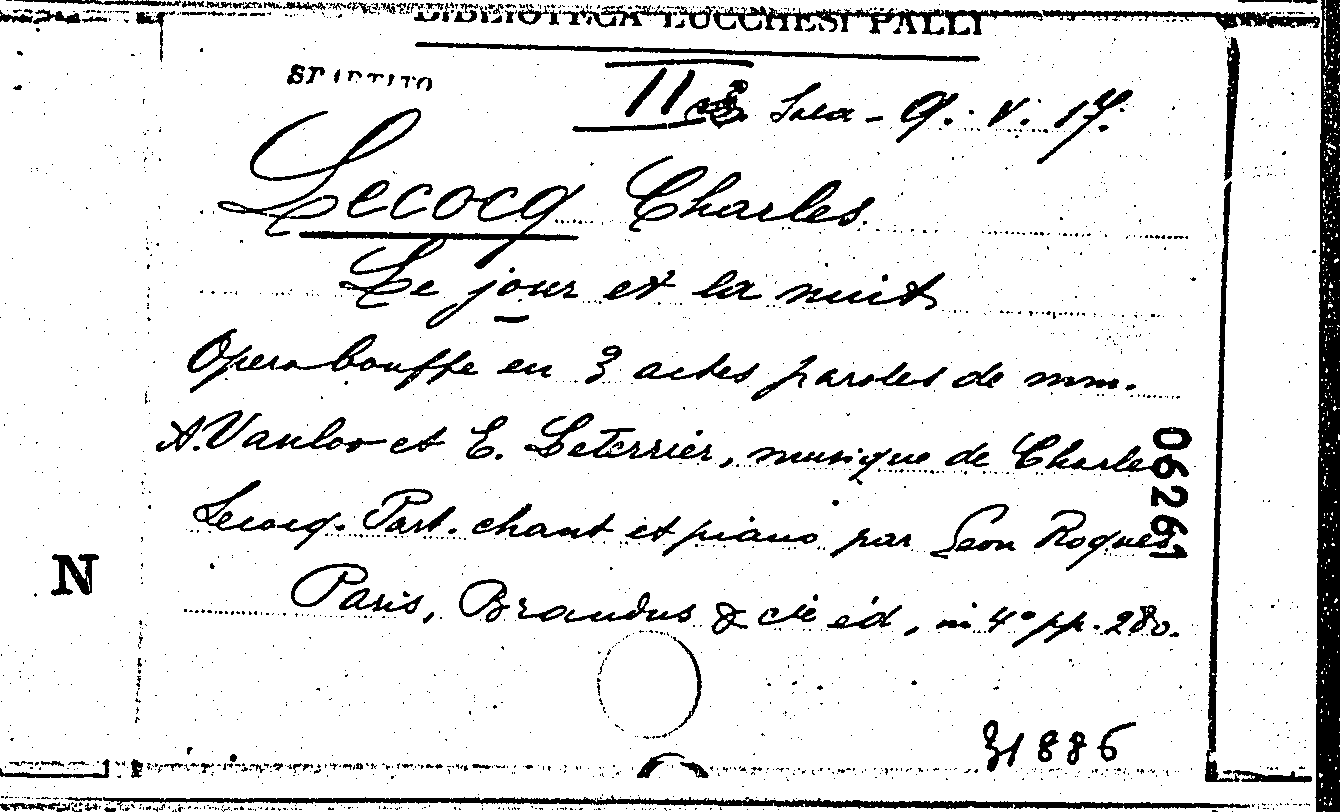 BIBLIOTECA LUCCHESI PALLI
SPARTITO
II Sala - 9. V. 17.
Lecocq Charles
Le jour et la nuit
Opera bouffe en 3 actes paroles de mm.
A. Vanloo et E. Leterrier, musique de Charles
Lecocq. Part. chant et piano par Leon Roques
Paris, Brandus & cie éd, in 4° pp. 280.
06261
N
31886